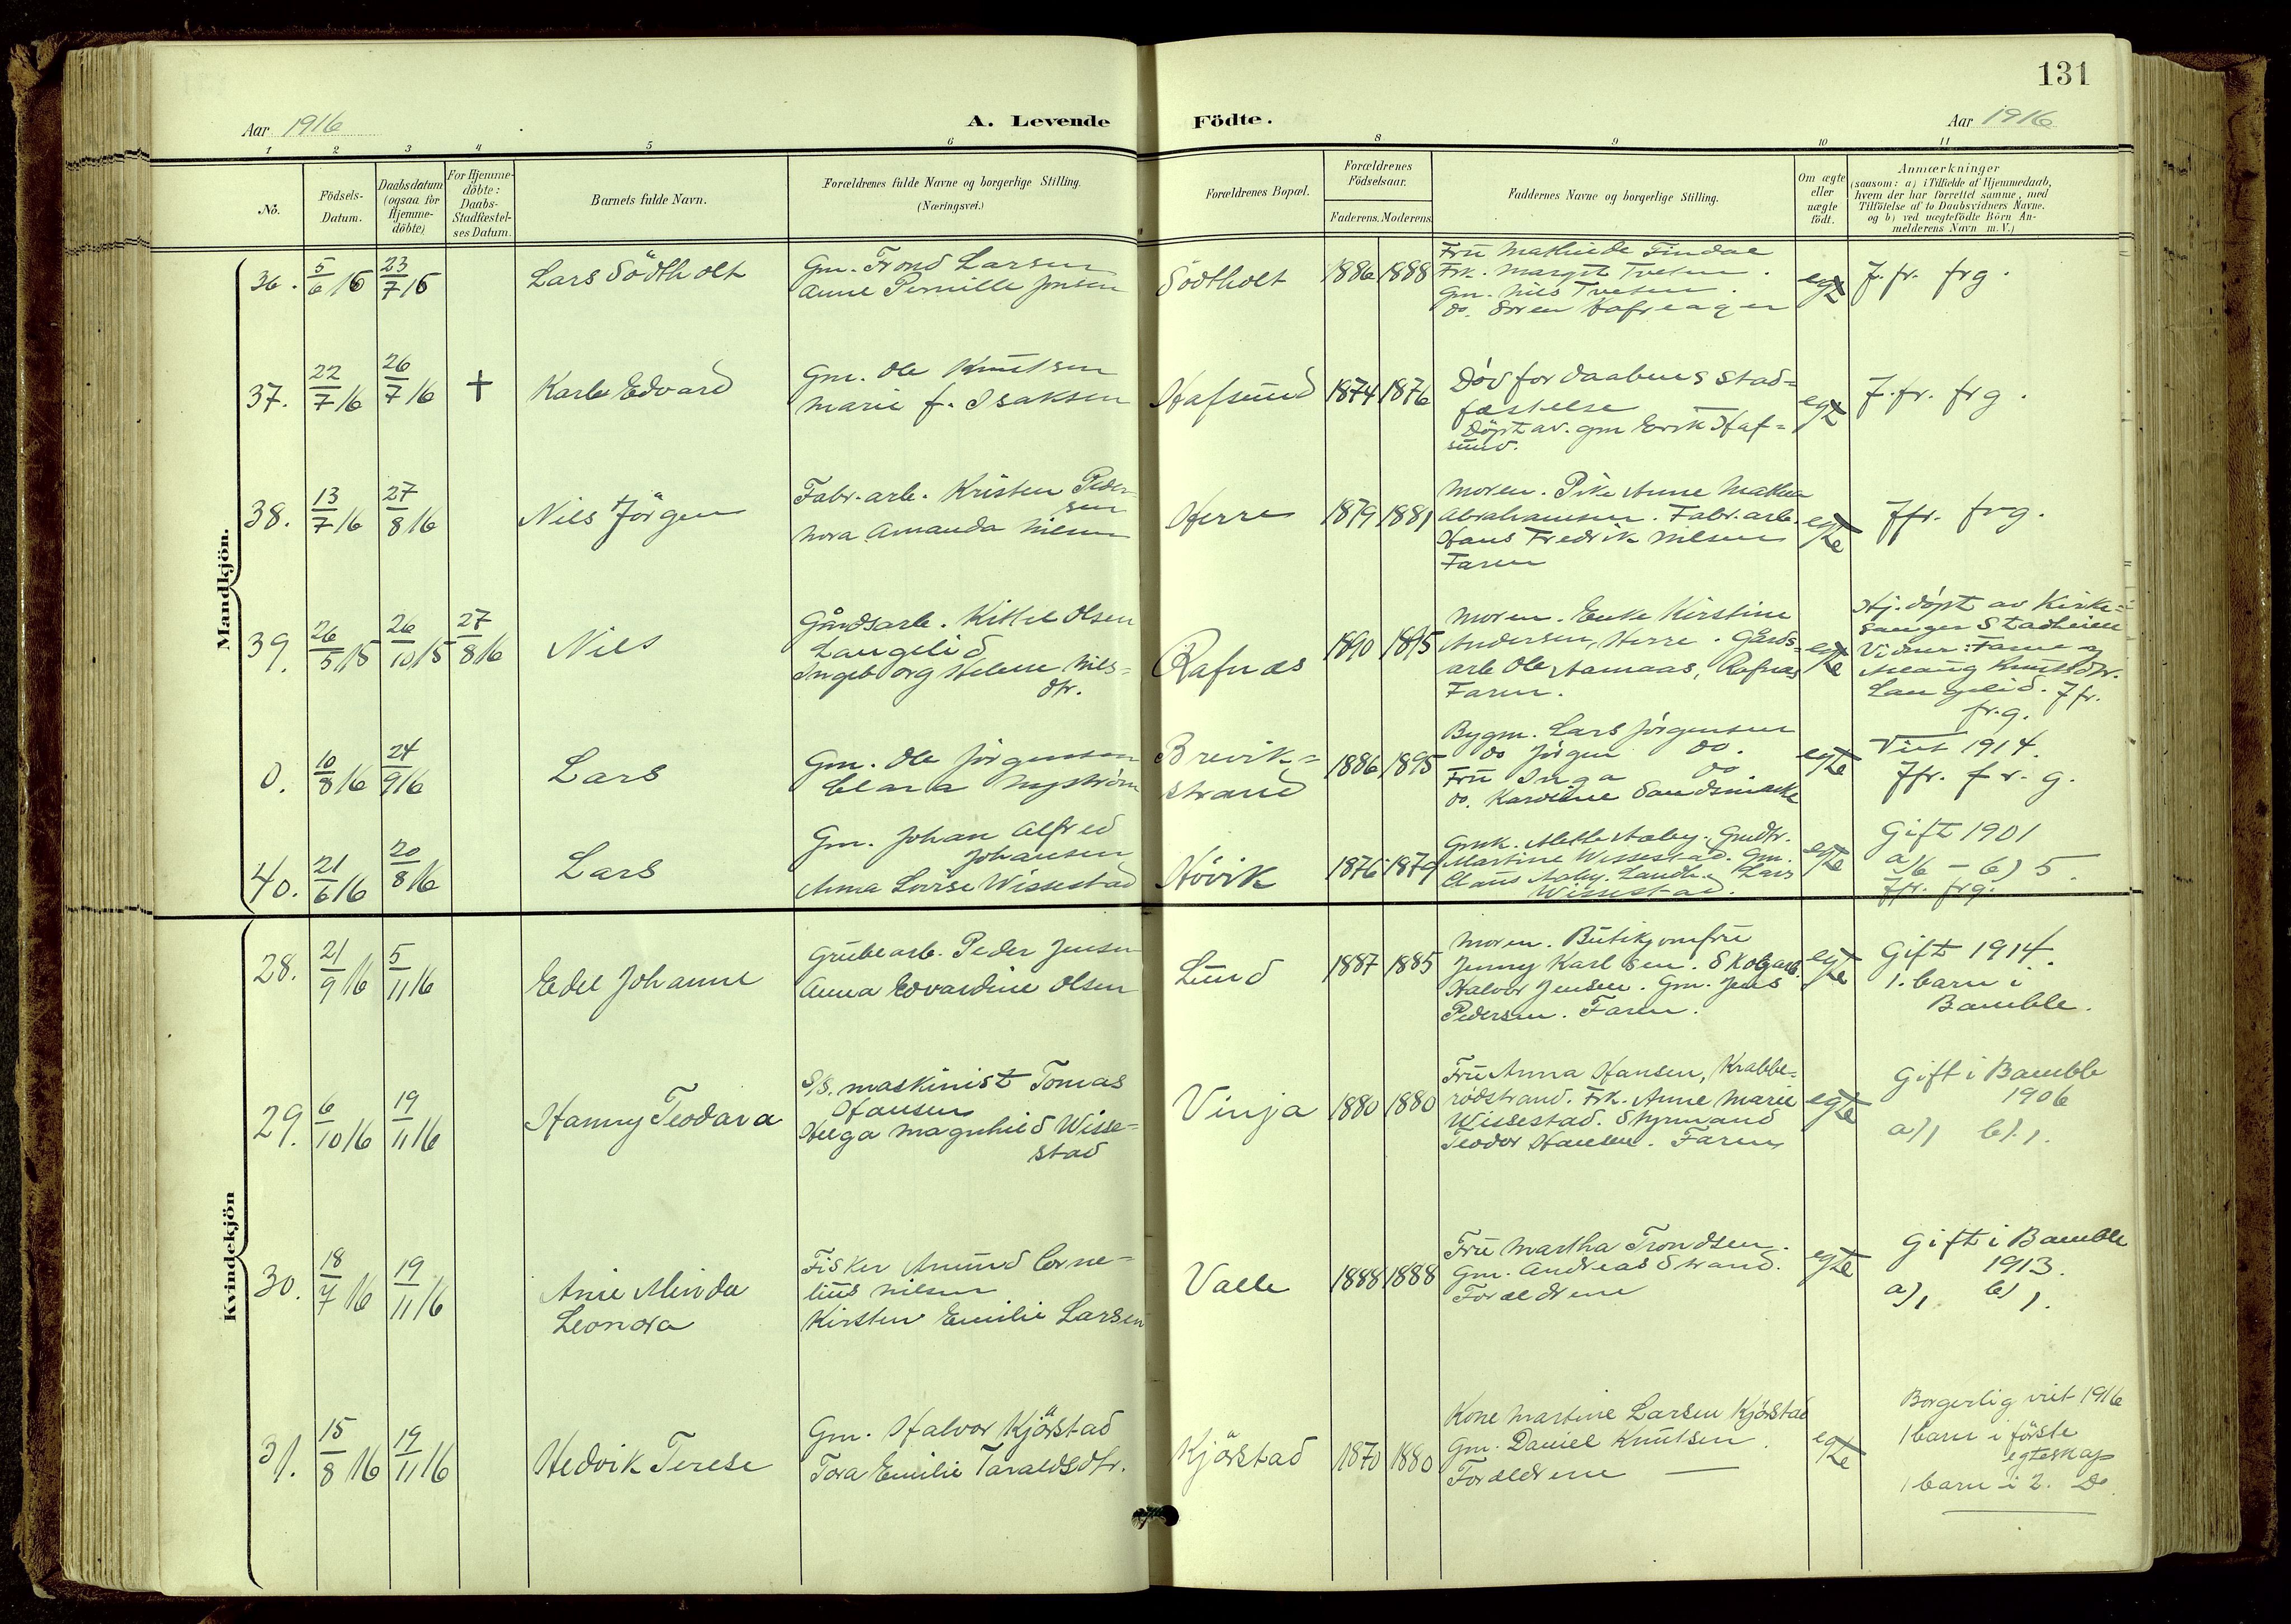 131
Aar 1916
A. Levende Födte.
Aar 1916
1 2 3 4 5 6 8 9 10 11
No.
Födsels-
Datum.
Daabsdatum
(ogsaa for
Hjemme-
döbte)
For Hjemme-
döbte:
Daabs-
Stadfæstel-
ses Datum.
Barnets fulde Navn.
Forældrenes fulde Navne og borgerlige Stilling.
(Næringsvei.)
Forældrenes Bopæl.
Forældrenes
Födselsaar.
Faderens. Moderens.
Faddernes Navne og borgerlige Stilling.
Om ægte
eller
uægte
födt.
Anmærkninger
(saasom: a) i Tilfælde af Hjemmedaab,
hvem der har forrettet samme, med
Tilföielse af to Daabsvidners Navne.
og b) ved uægtefödte Börn An-
melderens Navn m. V.)
Mandkjön.
36. 5/6 16 23/7 16
Lars Södtholt
Gm. Trond Larsen
Anne Pernille Jensen
Södtholt
1886 1888
Fru Mathilde Findal
Frk. Margit Tvesen.
Gm. Nils Tvesen.
do. Søren Hafreager
egte
J. fr. frg.
37. 22/7 16 26/7 16 +
Karl Edvard
Gm. Ole Knutsen
Marie f. Isaksen
Hafsund
1874 1876
Död for daabens stad=
fæstelse
Döpt av. gm Erik Haf=
sund.
egte
J. fr. frg.
38. 13/7 16 27/8 16
Nils Jörgen
Fabr. arb. Kristen Peder-
sen
Nora Amanda Nilsen
Herre
1879 1881
Moren. Pike Anne Mathea
Abrahamsen. Fabr. arb.
Hans Fredrik Nilsen
Faren
egte
Jfr. frg.
39. 26/5 15 26/10 15 27/8 16
Nils
Gårdsarb. Kittel Olsen
Langelid
Ingeborg Helene Nils=
dtr.
Rafnæs
1890 1895
Moren. Enke Kirstine
Andersen, Herre. Gårds=
arb Ole Aamaas, Rafnæs
Faren.
egte
Hj. döpt av Kirke=
sanger Stadheim
Vidner: Farne og
Aslaug Knutsdtr.
Langelid. Jfr.
fr. g.
0. 10/8 16 24/9 16
Lars
Gm. Ole Jörgensen
Clara Nyström
Brevik=
strand
1886 1895
Bygm. Lars Jörgensen
do Jörgen do.
Fru Inga do
do. Karoline Sandsmiche
egte
Viet 1914.
Jfr. f r. g.
40. 21/6 16 20/8 16
Lars
Gm. Johan Alfred
Johansen
Anna Lovise Wissestad
Hövik
1876 1879
Gmk. Mette Aaby. Gmdtr.
Martine Wissestad. Gm.
Claus Aaby. Landh. Lars
Wissestad.
egte
Gift 1901
a) 6 – b) 5.
Jfr. frg.
Kvindekjön
28. 21/9 16 5/11 16
Edel Johanne
Grubearb. Peder Jensen
Anna Edvardine Olsen
Lund
1887 1885
Moren. Butikjomfru
Jenny Karlsen. Skogarb.
Halvor Jensen. Gm. Jens
Pedersen. Faren.
egte
Gift 1914.
1. barn i
Bamble.
29. 6/10 16 19/11 16
Hanny Teodara
S/S. maskinist Tomas
Hansen
Helga Magnhild Wisse=
stad
Vinja
1880 1880
Fru Anna Hansen, Krabbe=
rødstrand. Frk. Anne Marie
Wissestad. Styrmand
Teodor Hansen. Faren
egte
Gift i Bamble
1906
a) 1 b). 1.
30. 18/7 16 19/11 16
Anie Minda
Leonora
Fisker Amund Corne=
lius Nilsen
Kirsten Emilie Larsen
Valle
1888 1888
Fru Martha Trondsen.
Gm. Andreas Strand.
Forældrene
egte
Gift i Bamble
1913.
a) 1 b) 1.
31. 15/8 16 19/11 16
Hedvik Terese
Gm. Halvor Kjörstad
Tora Emilie Taraldsdtr.
Kjörstad
1870 1880
Kone Martine Larsen Kjörstad
Gm. Daniel Knutsen.
Forældrene —
egte
Borgerlig viet 1916
1 barn i förste
egteskap
1 barn i 2. Do